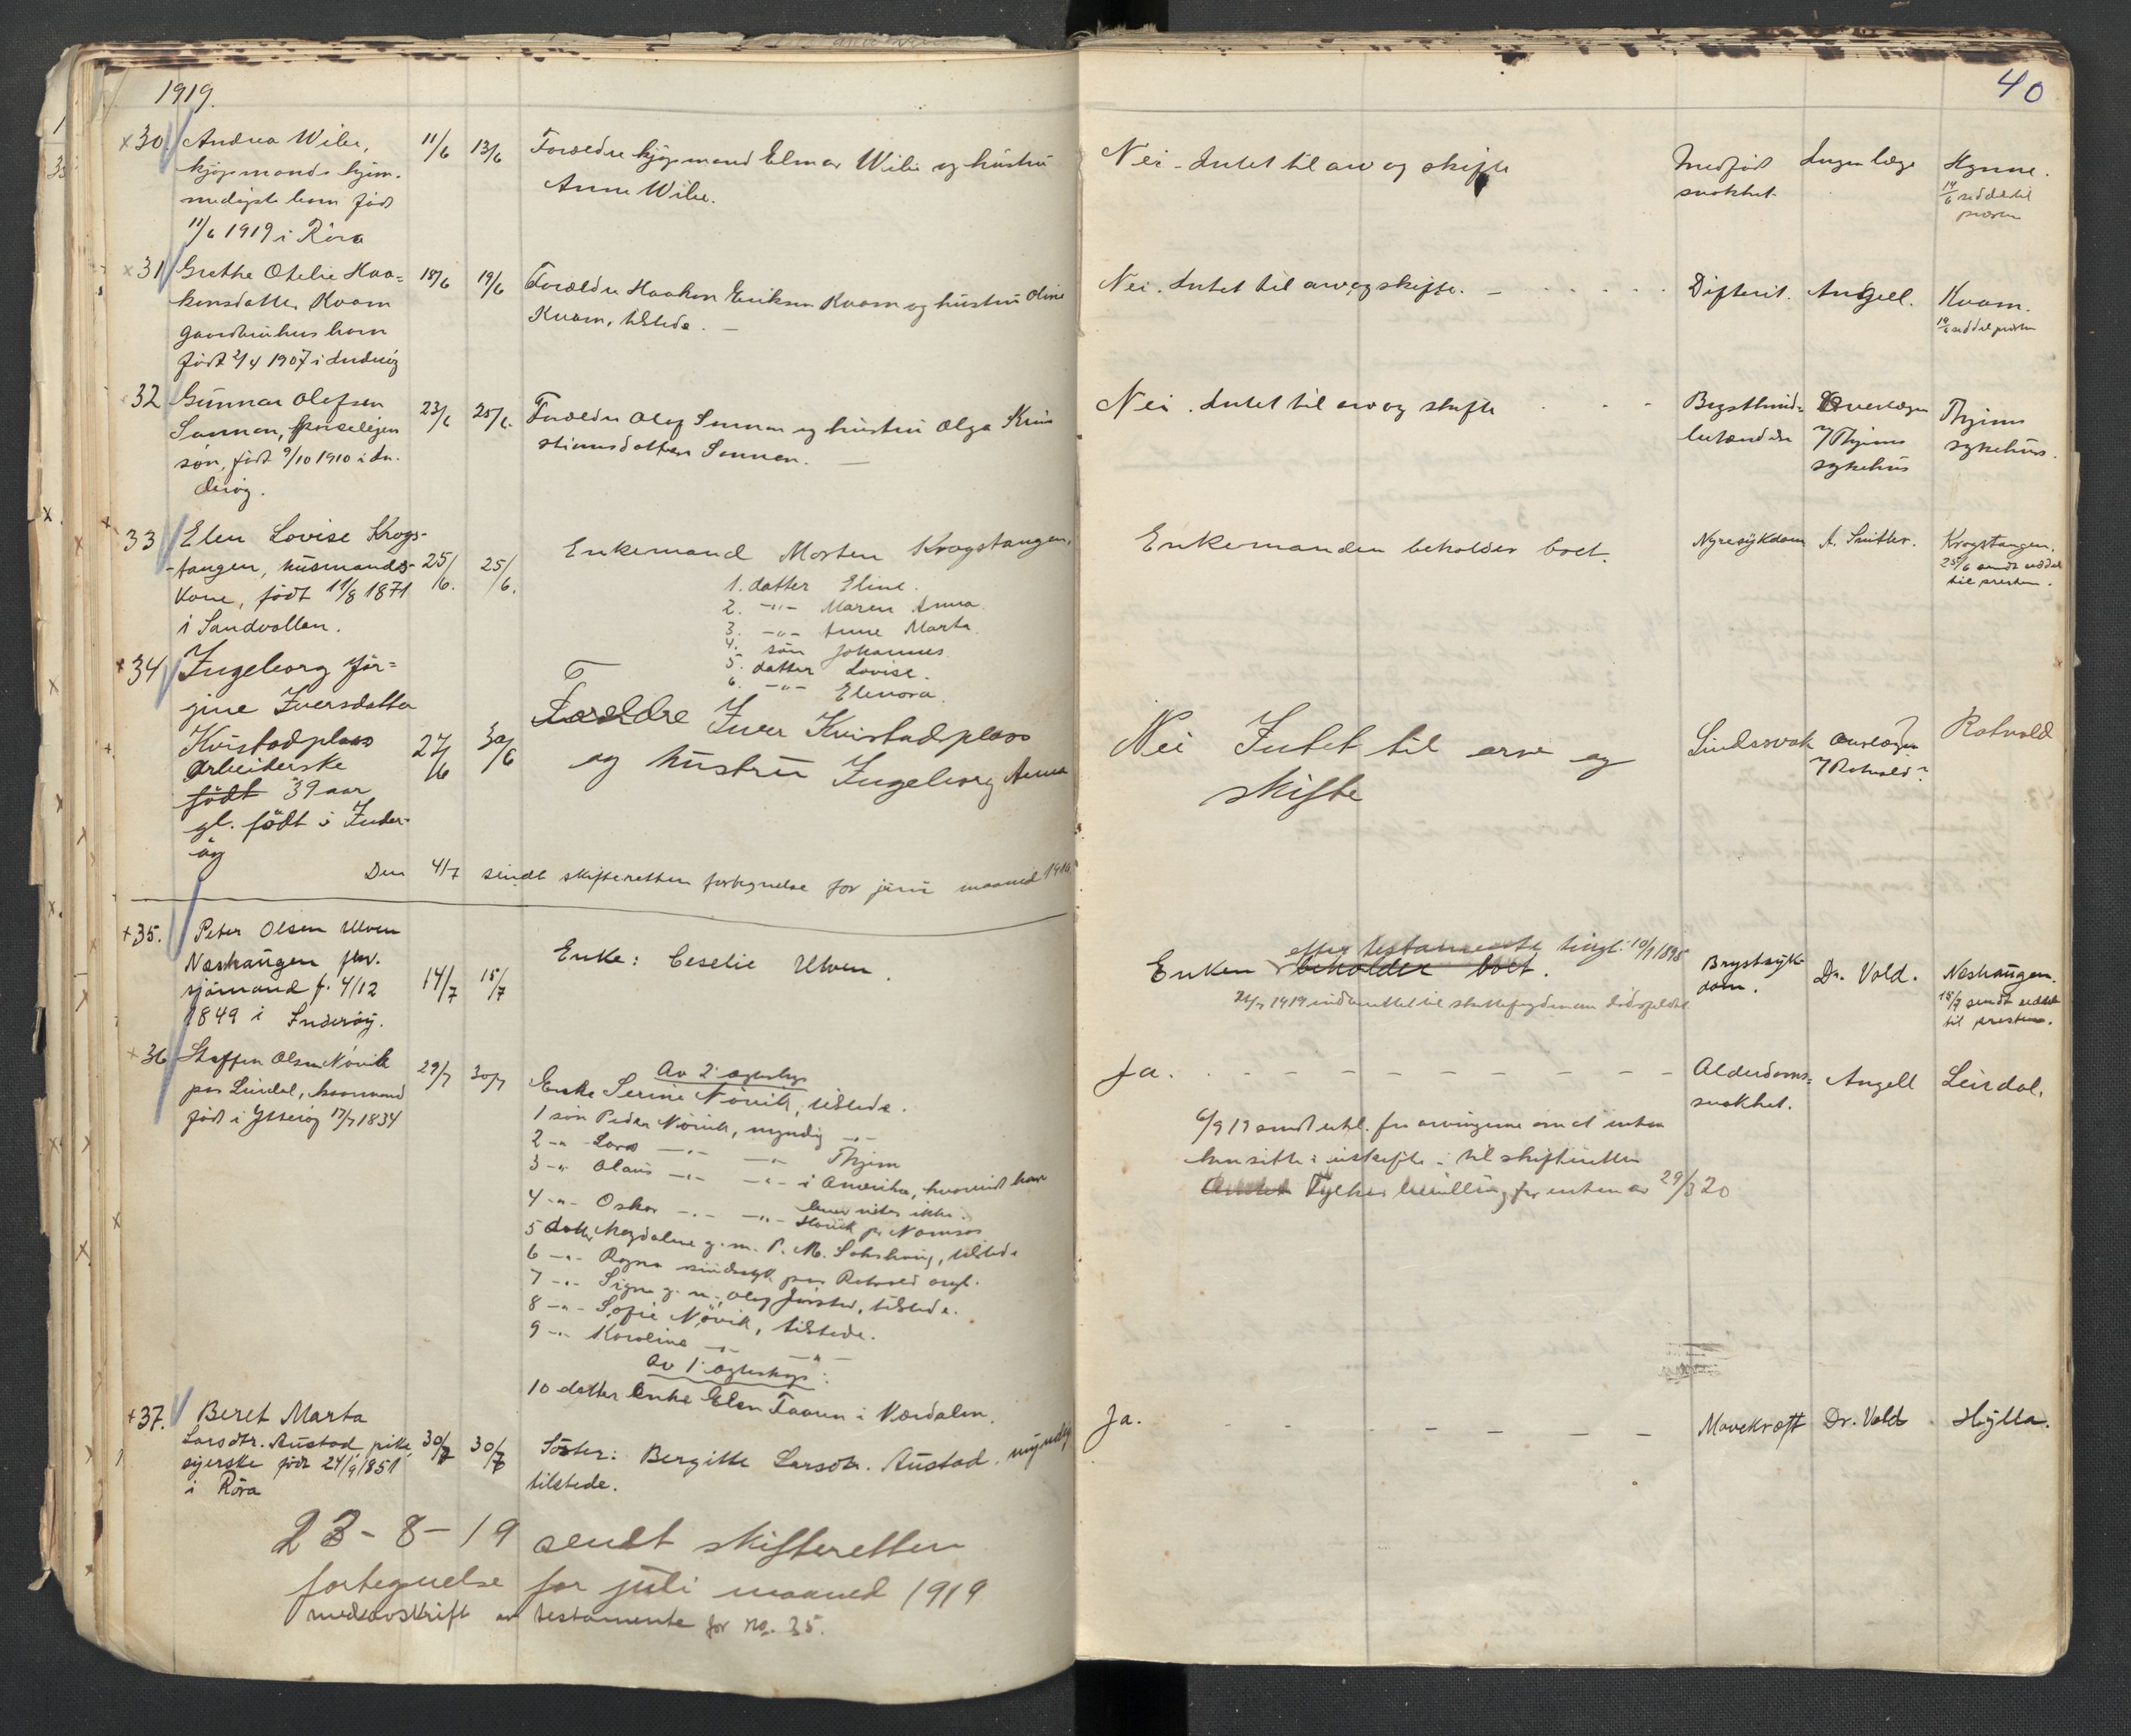 1919.
40
x30. Andrea Wibe,
kjøpmands hjem-
medøpt barn født
11/6 1919 i Röra
11/6 13/6
Foreldre kjøpmand Elmar Wibe og hustru
Anne Wibe.
Nei. Intet til arv og skifte
Medfødt
svakhet.
Ingen læge
Hynne.
14/6 seddel til
presten
x31 Grethe Otelie Haa=
konsdatter Kvam
gaardbruker barn
født 2/4 1907 i Inderøy
18/6 19/6
Foreldre Haakon Eriksen Kvam og hustru Oline
Kvam, tilstede. —
Nei. Intet til arv og skifte. —
Difterit.
Angell.
Kvam.
19/6 seddel presten
32 Gunnar Olefsen
Sannan,
søn, født 9/10 1910 i In-
derøy.
23/6 25/6.
Foreldre Olaf Sannan og hustru Olga Kris
stiansdatter Sannan. —
Nei. Intet til arv og skifte
Brysthind=
betændelse
Overlægen
v/Thjems
sykehus
Thjems
sykehus.
33 Elen Lovise Krogs-
-tangen, husmands-
kone, født 11/8 1871
i Sandvollan.
25/6. 25/6.
Enkemand Morten Krogstangen,
1. datter Eline.
2. -"- Maren Anna.
3. -"- Anne Marta.
4. søn Johannes.
5. datter Lovise.
6. -"- Elenora.
Enkemanden beholder boet.
Nyresykdom
A. Smitter.
Krogstangen.
25/6 sendt seddel
til presten.
x34 Ingeborg Jör=
gine Iversdatter
Kvistadplass
arbeiderske
født 39 aar
gl. født i Inder-
øy
27/6 30/6
Foreldre Iver Kvistadplass
og hustru Ingeborg Anna
Nei Intet til arv og
skifte
Sindssvak
Overlægen
v/Rotvold?
Rotvold
Den 4/7 sendt skifteretten fortegnelse for juni maaned 1919
+35. Peter Olsen Ulven
Neshaugen fhv.
sjømand f. 4/12
1849 i Inderøy.
14/7 15/7
Enke: Ceselie Ulven.
efter testamente tingl. 10/9 1895
Enken beholder boet.
24/7 1919 indberettet til skattefogden om dødsfaldet.
Brystsyk-
dom.
Dr. Vold.
Neshaugen.
15/7 sendt seddel
til presten.
+36 Steffen Olsen Növik
paa Leirdal, kaarmand
født i Ytterøy 17/7 1834
29/7 30/7
Av 2. egteskap
Enke Serine Növik, tilstede.
1 søn Peder Növik, myndig -"-
2 -"- Lars -"- -"- Thjem
3 -"- Olaus -"- -"- i Amerika, hvorvidt han
lever vites ikke.
4 -"- Oskar -"- -"- Havik pr. Namsos
5 datter Magdalene g. m. P. M. Sakshaug, tilstede
6 -"- Ragna sindssyk paa Rotvold asyl.
7 -"- Signe g. m. Olaf Jørstad, tilstede.
8 -"- Sofie Növik, tilstede.
9 -"- Karoline -"- -"-
Av 1. egteskap:
10 datter Enke Elen Faaren i Værdalen.
Ja. . - - - - - - - -
6/9 19 sendt erkl. fra arvingerne om at enken
kan sitte i uskifte til skifteretten
Tykkes bevilling for enken av 29/3 20
Alderdoms=
svakhet.
Angell
Leirdal.
+37. Beret Marta
Larsdtr. Austad, pike,
syerske født 24/9 1851
i Röra
30/7 30/7
Søster: Bergitte Larsdtr. Austad, myndig
tilstede.
Ja. - - - - - - -
Mavekræft
Dr. Vold
Hylla.
23-8-19 sendt skifteretten
fortegnelse for juli maaned 1919
med avskrift av testamente for no. 35.